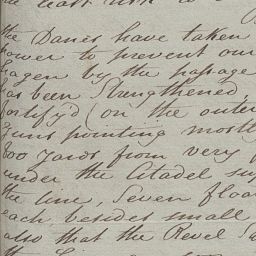 the Danes have taken
power to prevent our
hagen by the passage
has been Strengthened,
fortify'd (on the outer
guns pointing mostly
800 yards from very
under the Citadel
the line, Seven
each besides small
also that the Revel